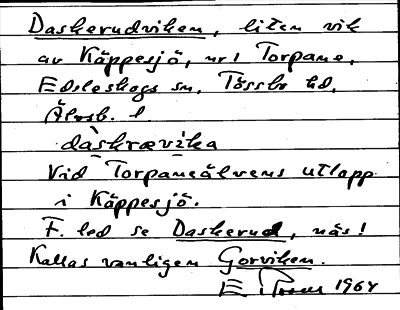 Daskerudviken, liten vik
av Käppesjö, nr 1 Torpane,
Edsleskogs sn, Tössbo hd,
Älvsb. l
dàskrævi̱ka
Vid Torpaneälvens utlopp
i Käppesjö.
F. led se Daskerud, näs!
Kallas vanligen Gorviken.
1964